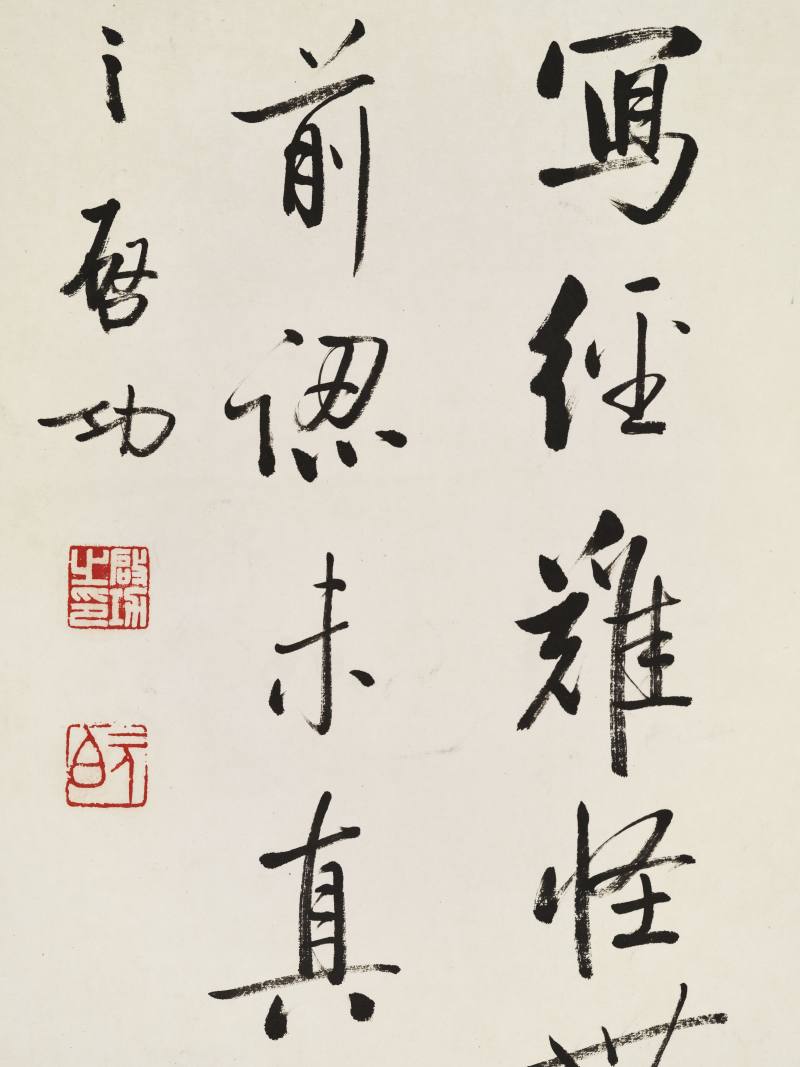 寫經難怪
前認未真
啓功
啓功之印
元白